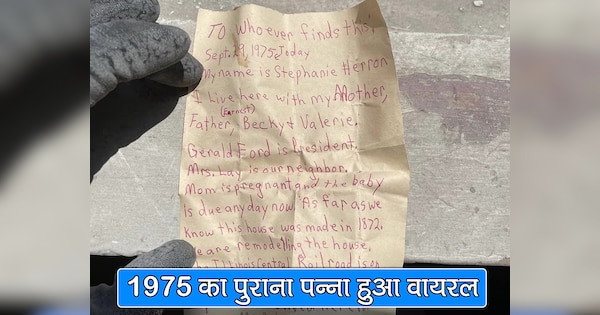 TO Whoever finds this!
Sept. 29, 1975, Today
My name is Stephanie Herron
I Live here with my Mother,
(Earnest)
Father, Becky & Valerie.
Gerald Ford is President.
Mrs. Lay is our neighbor.
Mom is pregnant and the baby
is due any day now. As far as we
Know this house was made in 1872.
We are remodelling the house,
Illinois Central Railroad is on
1975 का पुराना पन्ना हुआ वायरल